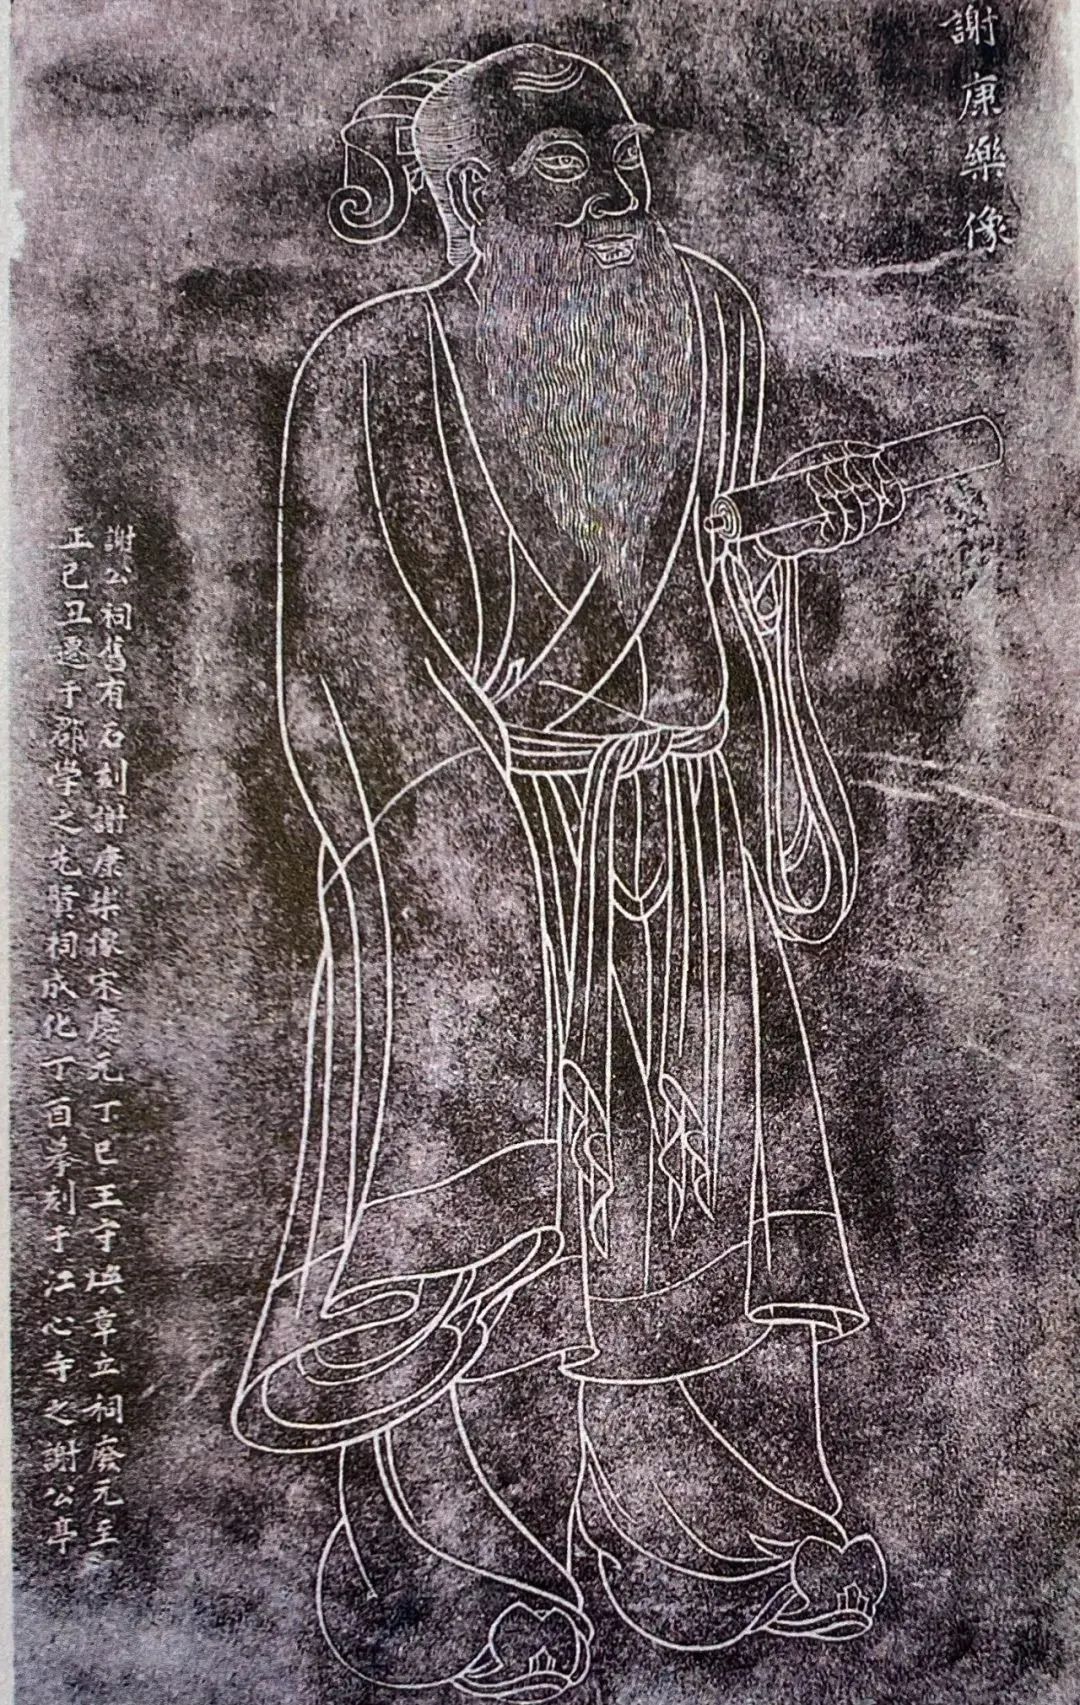 謝康樂像
謝公祠舊有石刻謝康樂像宋慶元丁巳王守煥章立祠廢元至
正己丑遷于郡學之先賢祠成化丁酉摹刻于江心寺之謝公亭